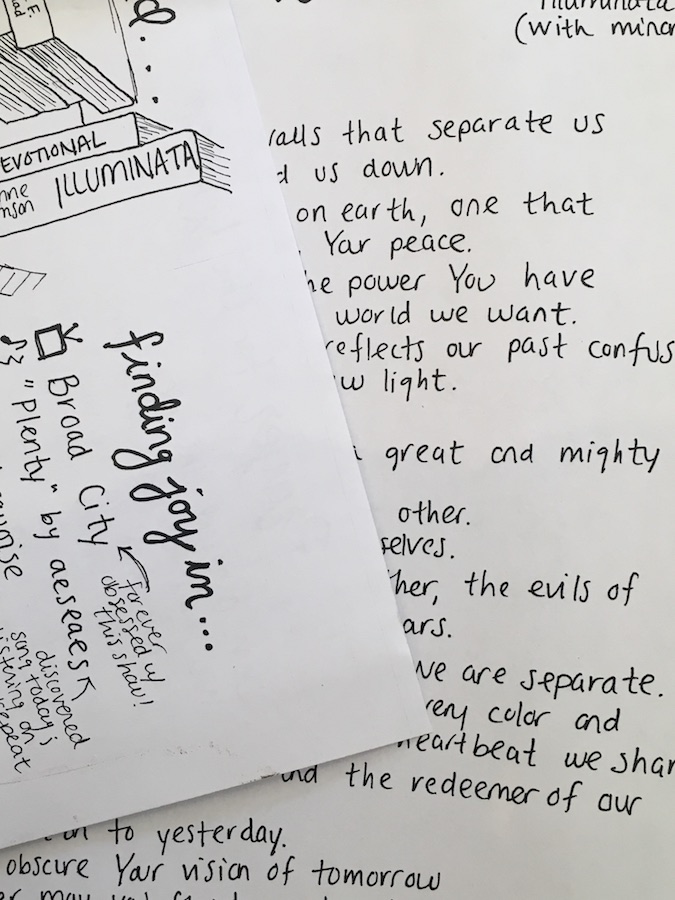 Illuminata
(with minor
walls that separate us
us down.
on earth, one that
Your peace.
the power You have
world we want.
reflects our past confus
light.
great and mighty
other.
selves.
the evils of
we are separate.
color and
heartbeat we share
and the redeemer of our
to yesterday.
obscure Your vision of tomorrow
may
DEVOTIONAL
ILLUMINATA
finding joy in...
Broad City
forever
obsessed w/
this show!
"Plenty" by aeseaes
discovered
song today &
listening on
repeat